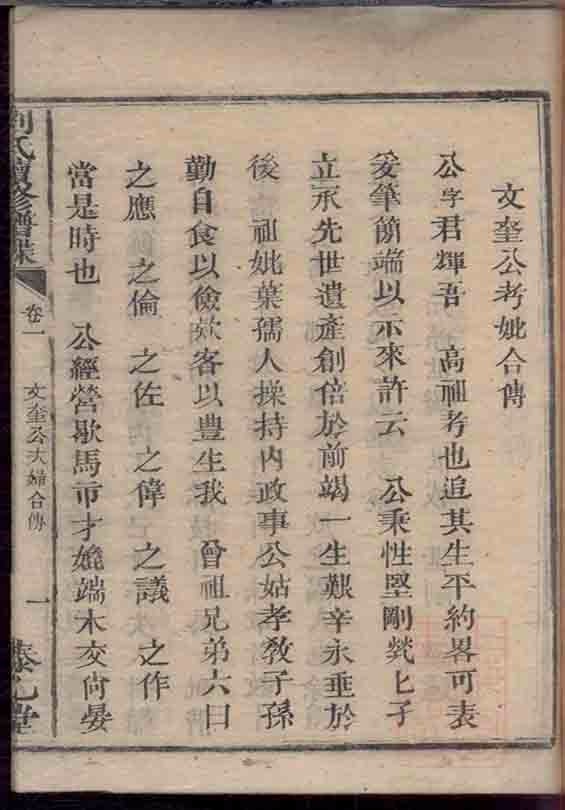 文奎公考妣合傳
公字君輝吾 高祖考也追其生平約畧可表
爰筆簡端以示來許云 公秉性堅剛煢匕孑
立承先世遺產創倍於前竭一生艱辛永垂於
後 祖妣葉孺人操持內政事公姑孝教子孫
勤自食以儉欵客以豊生我 曾祖兄弟六曰
之應 之倫 之佐 之偉 之議 之作
當是時也 公經營歇馬市才嬈端木交尙晏
劉氏續修譜牒 卷一 文奎公夫婦合傳 一 堂